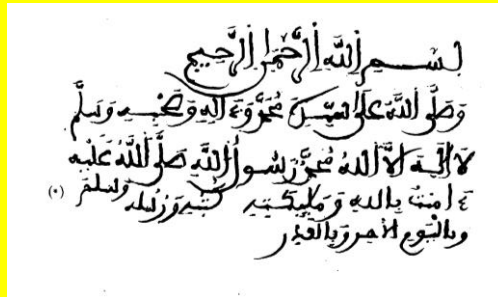 بسم الله الرحمن الرحيم
وصلى الله على سيدنا محمد وءاله وصحبه وسلم
لا إله إلا الله محمد رسول الله صلى الله عليه وسلم
ءامنت بالله وملئكته كتبه ورسله (٠)
وباليوم الأخر وبالقدر